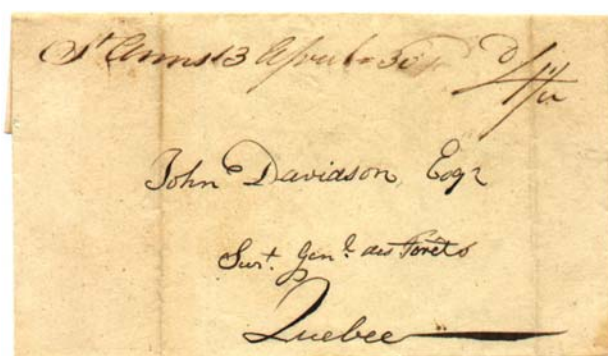 St Anns 13 April 30
John Davidson, Esqr
Surt. Genl. des Forêts
Quebec